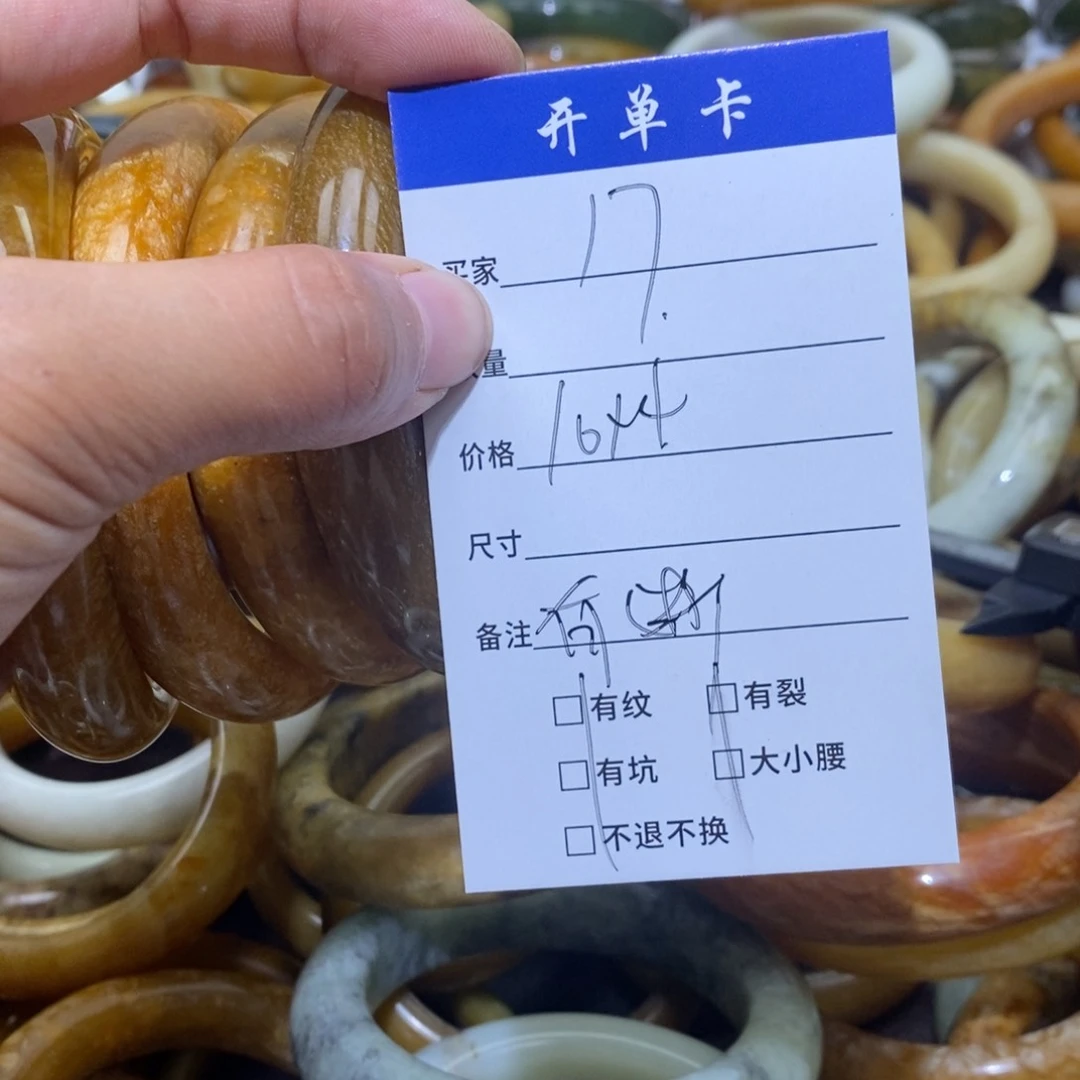 开单卡
买家 17.
量
价格 16x4
尺寸
备注
有纹 有裂
有坑 大小腰
不退不换